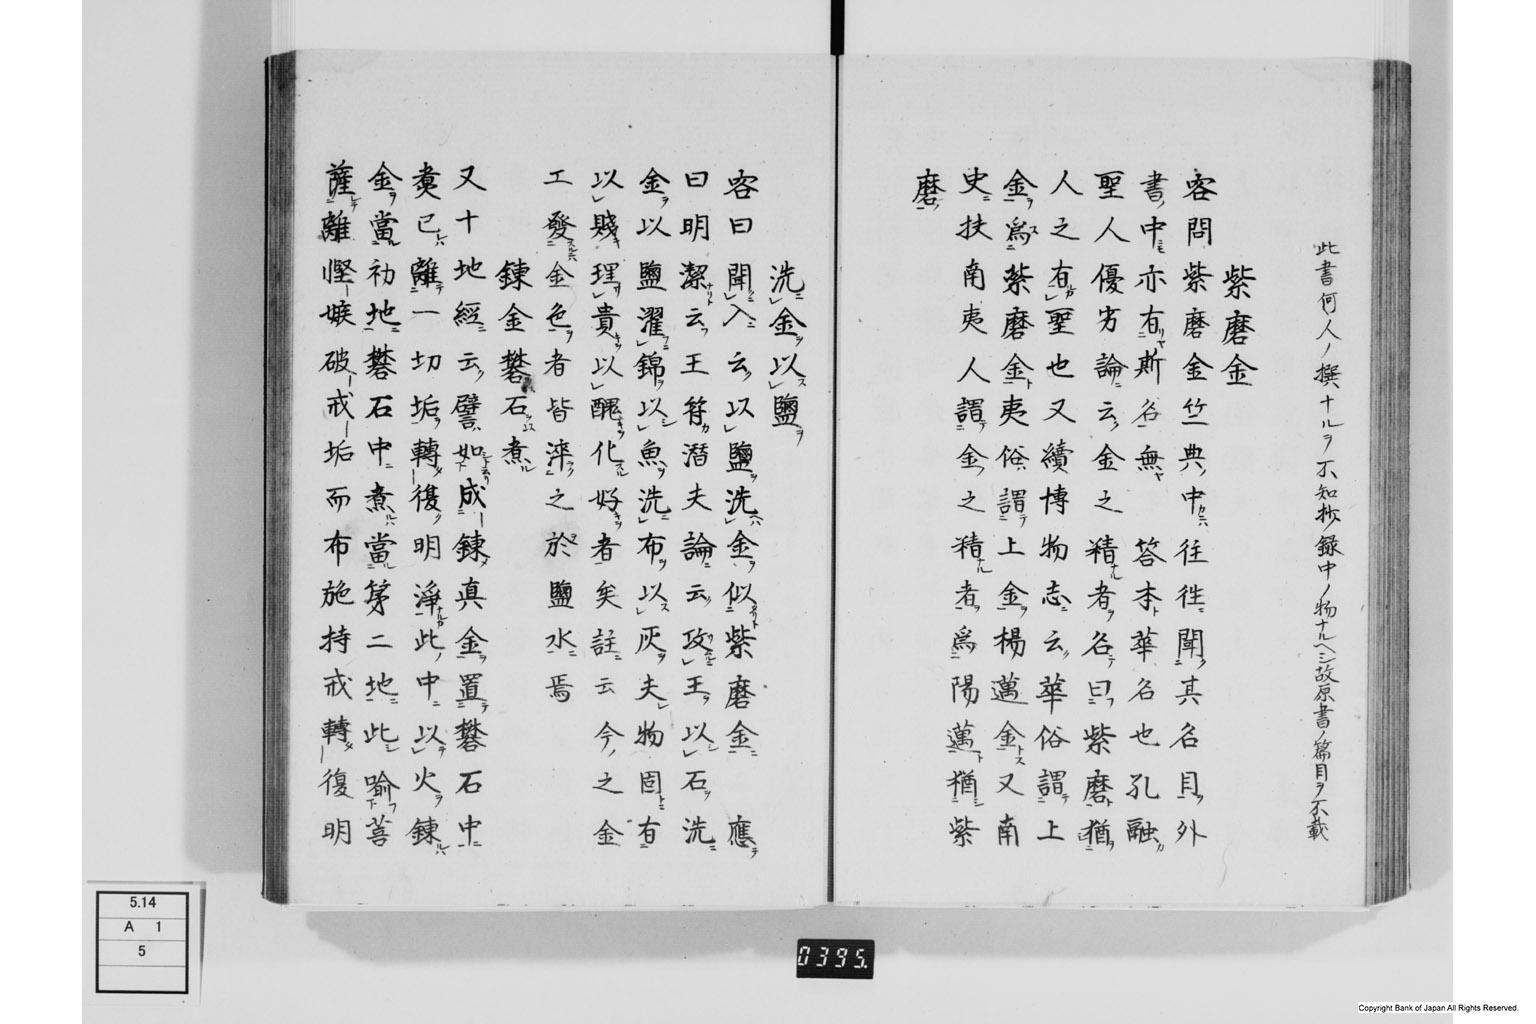 此書何人ノ撰ナルヲ不知抄録中ノ物ナルヘシ故原書ノ篇目ヲ不載
紫磨金
客問紫磨金竺典中往徃聞其名目外
書中亦有斯名無 答李華名也孔融
聖人優劣論云金之精者名曰紫磨猶
人之有聖也又續博物志云華俗謂上
金為紫磨金夷俗謂上金楊邁金又南
史扶南夷人謂金之精者為陽邁猶紫
磨
洗金以鹽
客曰聞入云以鹽洗金似紫磨金 應
曰明潔云王符潛夫論云攻玉以石洗
金以鹽濯錦以魚洗布以灰夫物固有
以賤理貴以醜化好者矣註云今之金
工發金色者皆淬之於鹽水焉
鍊金礬石煮
又十地經云譬如成鍊真金置礬石中
煑已離一切垢轉復明淨此中以火鍊
金當初地礬石中煮當第二地此喻菩
薩離慳嫉破戒垢而布施持戒轉復明
5.14
A 1
5
0395.
Copyright Bank of Japan All Rights Reserved.